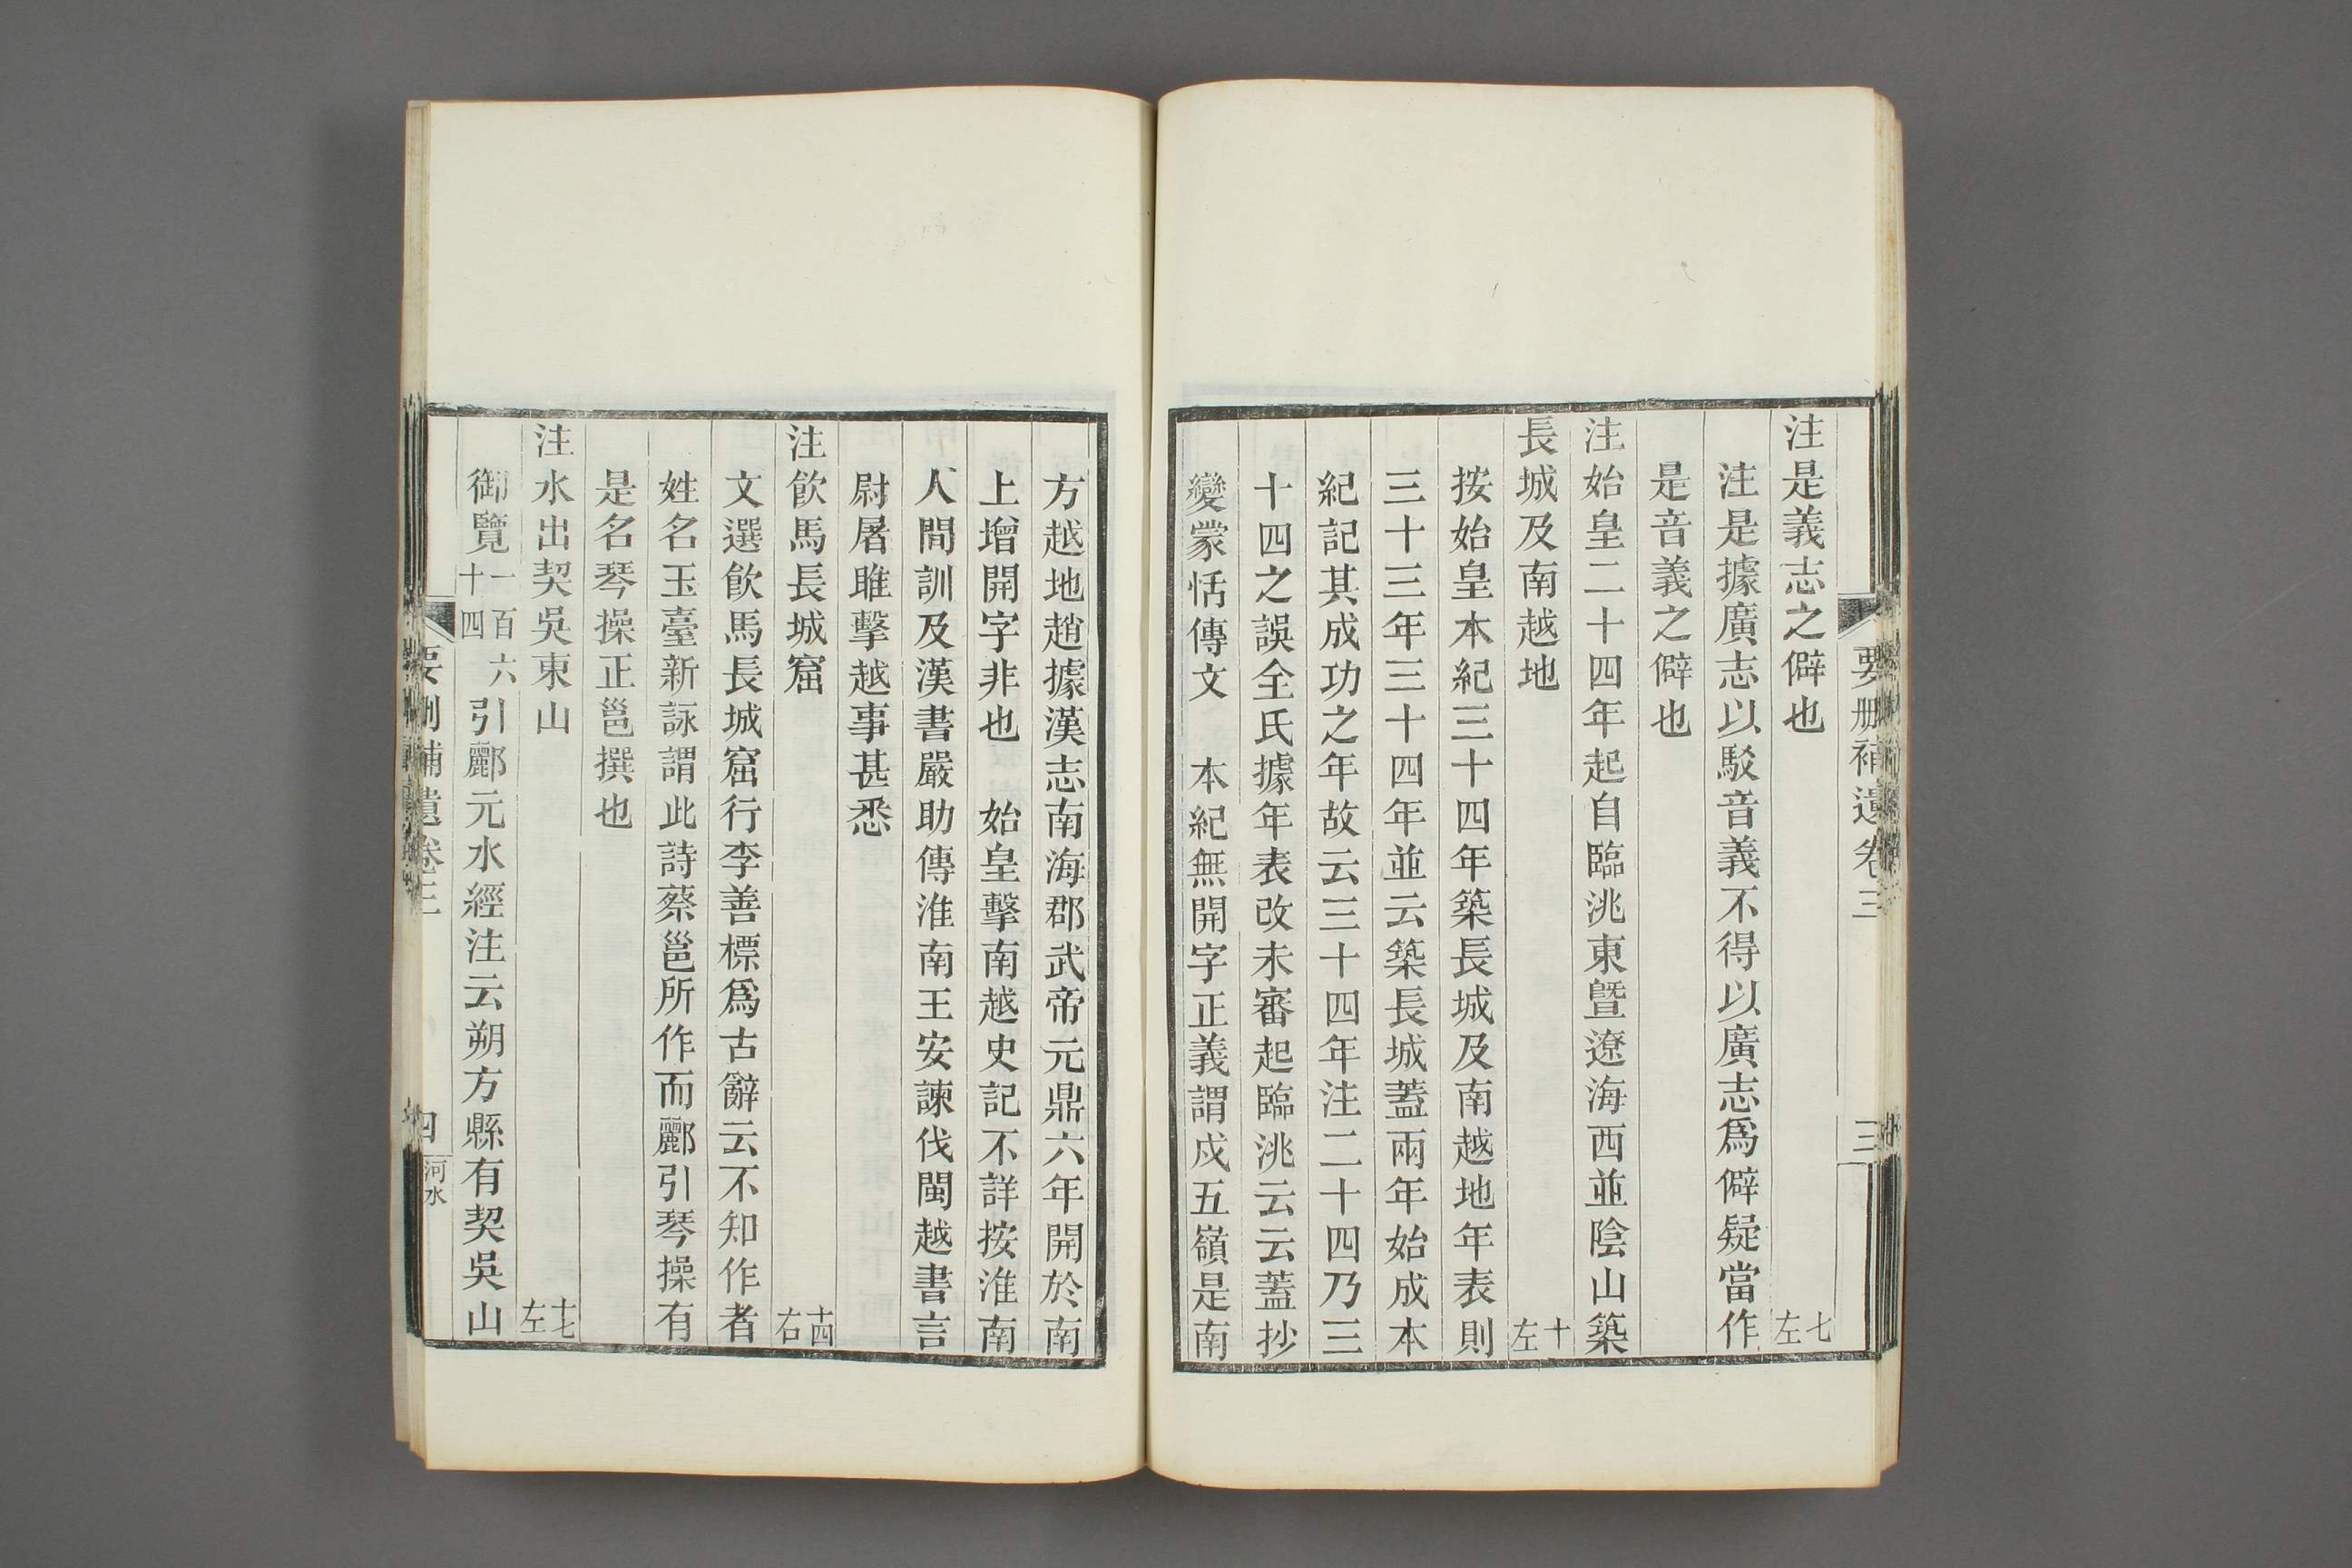 注是義志之僻也 七左
注是據廣志以駁音義不得以廣志爲僻疑當作
是音義之僻也
注始皇二十四年起自臨洮東曁遼海西並陰山築
長城及南越地 十左
按始皇本紀三十四年築長城及南越地年表則
三十三年三十四年並云築長城蓋兩年始成本
紀記其成功之年故云三十四年注二十四乃三
十四之誤全氏據年表改未審起臨洮云云蓋抄
變蒙恬傳文 本紀無開字正義謂戍五嶺是南
要刪補遺卷三 三
方越地趙據漢志南海郡武帝元鼎六年開於南
上增開字非也 始皇擊南越史記不詳按淮南
人間訓及漢書嚴助傳淮南王安諫伐閩越書言
尉屠睢擊越事甚悉
注飲馬長城窟 十四右
文選飲馬長城窟行李善標爲古辭云不知作者
姓名玉臺新詠謂此詩蔡邕所作而酈引琴操有
是名琴操正邕撰也
注水出契吳東山 十七左
御覽一百六十四引酈元水經注云朔方縣有契吳山
要刪補遺卷三 四 河水